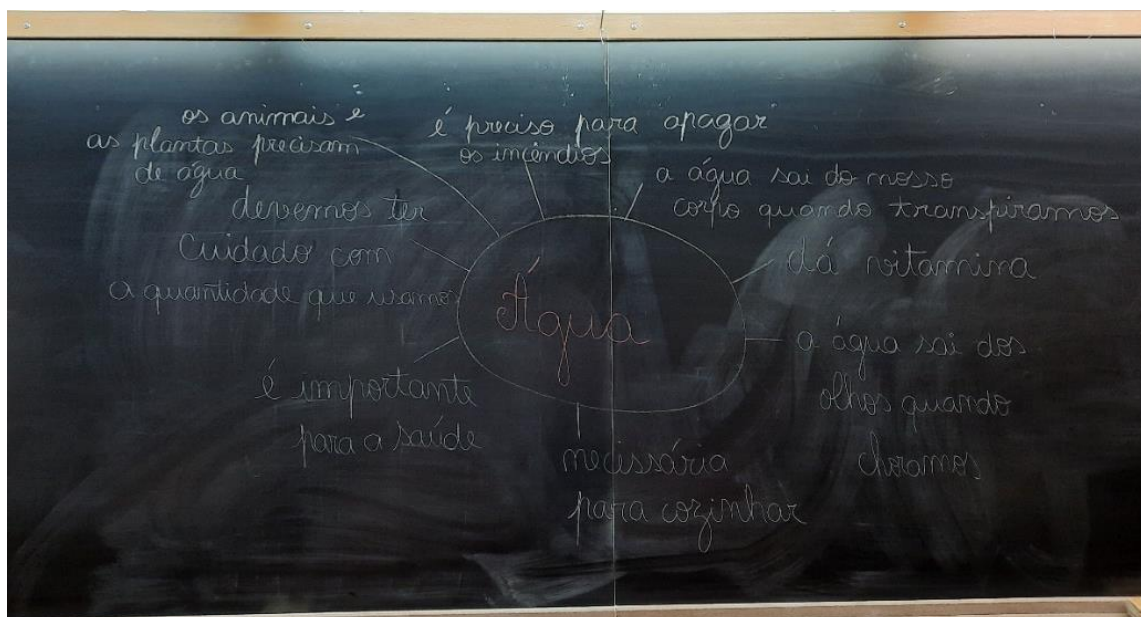 os animais e
as plantas precisam
de água
é preciso para apagar
os incêndios
a água sai do nosso
corpo quando transpiramos
devemos ter
cuidado com
a quantidade que usamos
dá vitamina
Água
a água sai dos
olhos quando
choramos
é importante
para a saúde
necissária
para cozinhar